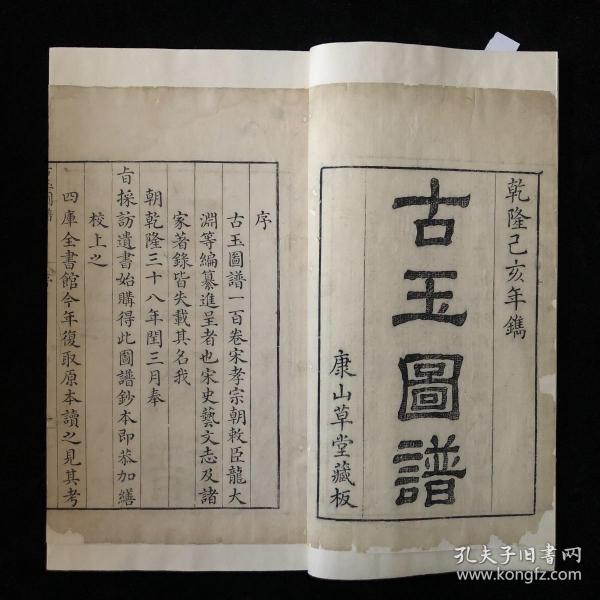 乾隆己亥年鐫
古玉圖譜
康山草堂藏板
序
古玉圖譜一百卷宋孝宗朝敕臣龍大
淵等編纂進呈者也宋史藝文志及諸
家著錄皆失載其名我
朝乾隆三十八年閏三月奉
旨採訪遺書始購得此圖譜鈔本即恭加繕
校上之
四庫全書館今年復取原本讀之見其考
孔夫子旧书网
www.kongfz.com